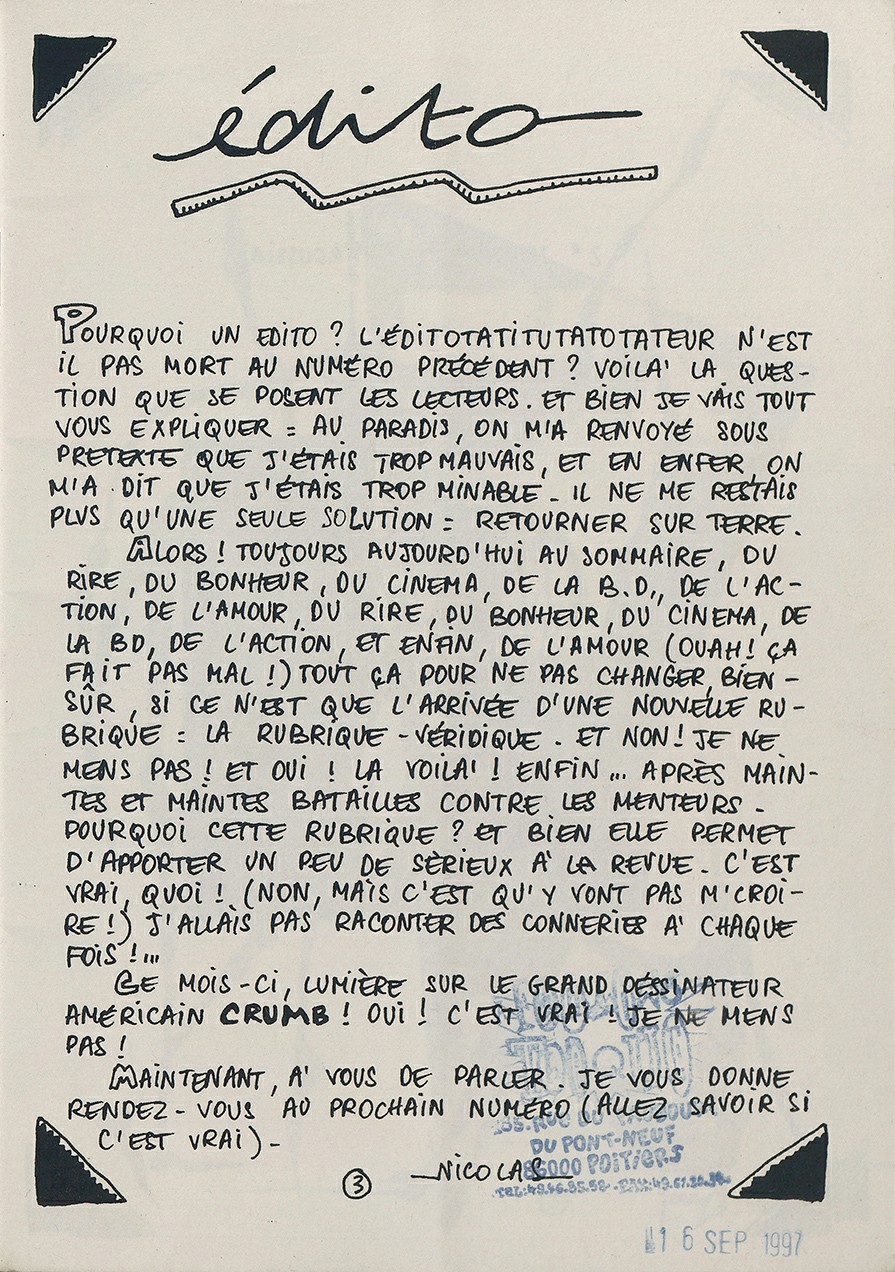 édito
POURQUOi UN EDITO ? L'ÉDITOTATITUTATOTATEUR N'EST
iL PAS MORT AU NUMÉRO PRÉCÉDENT ? VOILA' LA QUES-
TION QUE SE POSENT LES LECTEURS. ET BIEN JE VAIS TOUT
VOUS EXPLIQUER : AU PARADIS, ON M'A RENVOYÉ SOUS
PRETEXTE QUE J'ÉTAIS TROP MAUVAIS, ET EN ENFER, ON
M'A DIT QUE J'ÉTAIS TROP MINABLE. IL NE ME RESTAIS
PLUS QU'UNE SEULE SOLUTION : RETOURNER SUR TERRE.
ALORS ! TOUJOURS AUJOURD'HUI AU SOMMAIRE, DU
RIRE, DU BONHEUR, DU CINEMA, DE LA B.D., DE L'AC-
TION, DE L'AMOUR, DU RIRE, DU BONHEUR, DU CINEMA, DE
LA BD, DE L'ACTION, ET ENFIN, DE L'AMOUR (OUAH! ÇA
FAIT PAS MAL !) TOUT ÇA POUR NE PAS CHANGER, BIEN-
SÛR, SI CE N'EST QUE L'ARRIVÉE D'UNE NOUVELLE RU-
BRIQUE : LA RUBRIQUE-VÉRIDIQUE. ET NON! JE NE
MENS PAS ! ET OUI ! LA VOILA' ! ENFIN ... APRÈS MAIN-
TES ET MAINTES BATAILLES CONTRE LES MENTEURS.
POURQUOI CETTE RUBRIQUE ? ET BIEN ELLE PERMET
D'APPORTER UN PEU DE SÈRIEUX A' LA REVUE. C'EST
VRAI, QUOI ! (NON, MAIS C'EST QU'Y VONT PAS M'CROI-
RE !) J'ALLAIS PAS RACONTER DES CONNERIES A' CHAQUE
FOIS !...
CE MOIS-CI, LUMIÈRE SUR LE GRAND DÉSSINATEUR
AMÉRICAIN CRUMB ! OUI ! C'EST VRAI ! JE NE MENS
PAS !
MAINTENANT, A' VOUS DE PARLER. JE VOUS DONNE
RENDEZ-VOUS AU PROCHAIN NUMÉRO (ALLEZ SAVOIR SI
C'EST VRAI).
DU PONT-NEUF
86000 POITIERS
NICOLAS
3
16 SEP 1997